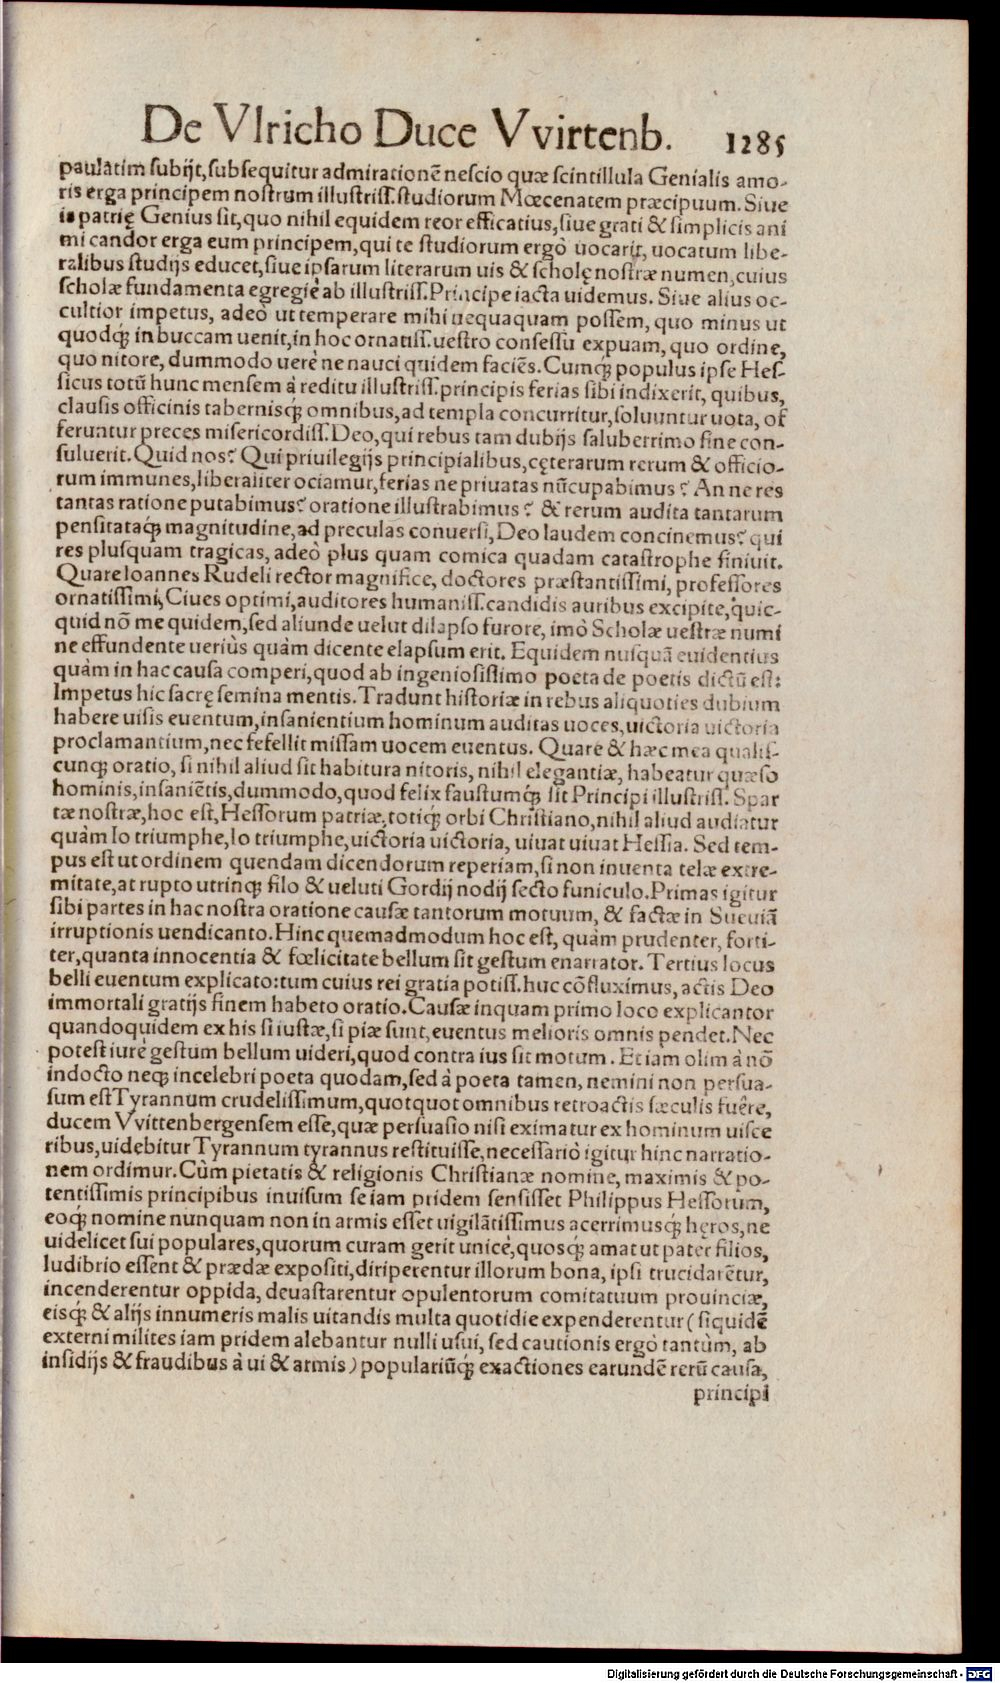 De Vlricho Duce Vvirtenb. 1285
paulatim subijt, subsequitur admirationē nescio quæ scintillula Genialis amo-
ris erga principem nostrum illustriss. studiorum Mœcenatem præcipuum. Siue
is patrię Genius sit, quo nihil equidem reor efficatius, siue grati & simplicis ani
mi candor erga eum principem, qui te studiorum ergò uocarit, uocatum libe-
ralibus studijs educet, siue ipsarum literarum uis & scholę nostræ numen, cuius
scholæ fundamenta egregiè ab illustriss. Principe iacta uidemus. Siue alius oc-
cultior impetus, adeò ut temperare mihi nequaquam possem, quo minus ut
quodq́; in buccam uenit, in hoc ornatiss. uestro consessu expuam, quo ordine,
quo nitore, dummodo uerè ne nauci quidem faciēs. Cumq; populus ipse Hes-
sicus totū hunc mensem à reditu illustriss. principis ferias sibi indixerit, quibus,
clausis officinis tabernisq́; omnibus, ad templa concurritur, soluuntur uota, of
feruntur preces misericordiss. Deo, qui rebus tam dubijs saluberrimo fine con-
suluerit. Quid nos? Qui priuilegijs principialibus, cęterarum rerum & officio-
rum immunes, liberaliter ociamur, ferias ne priuatas nūcupabimus? An ne res
tantas ratione putabimus? oratione illustrabimus? & rerum audita tantarum
pensitataq́; magnitudine, ad preculas conuersi, Deo laudem concinemus? qui
res plusquam tragicas, adeò plus quam comica quadam catastrophe finiuit.
Quare Ioannes Rudeli rector magnifice, doctores præstantissimi, professores
ornatissimi, Ciues optimi, auditores humaniss. candidis auribus excipite, quic-
quid nō me quidem, sed aliunde uelut dilapso furore, imò Scholæ uestræ numi
ne effundente ueriùs quàm dicente elapsum erit. Equidem nusquā euidentius
quàm in hac causa comperi, quod ab ingeniosissimo poeta de poetis dictū est:
Impetus hic sacrę semina mentis. Tradunt historiæ in rebus aliquoties dubium
habere uisis euentum, insanientium hominum auditas uoces, uictoria uictoria
proclamantium, nec fefellit missam uocem euentus. Quare & hæc mea qualis-
cunq; oratio, si nihil aliud sit habitura nitoris, nihil elegantiæ, habeatur quæso
hominis, insaniētis, dummodo, quod felix faustumq́; sit Principi illustriss. Spar
tæ nostræ, hoc est, Hessorum patriæ, totiq́; orbi Christiano, nihil aliud audiatur
quàm Io triumphe, Io triumphe, uictoria uictoria, uiuat uiuat Hessia. Sed tem-
pus est ut ordinem quendam dicendorum reperiam, si non inuenta telæ extre-
mitate, at rupto utrinq; filo & ueluti Gordij nodij secto funiculo. Primas igitur
sibi partes in hac nostra oratione causæ tantorum motuum, & factæ in Sueuiā
irruptionis uendicanto. Hinc quemadmodum hoc est, quàm prudenter, forti-
ter, quanta innocentia & fœlicitate bellum sit gestum enarrator. Tertius locus
belli euentum explicato: tum cuius rei gratia potiss. huc cōfluximus, actis Deo
immortali gratijs finem habeto oratio. Causæ inquam primo loco explicantor
quandoquidem ex his si iustæ, si piæ sunt, euentus melioris omnis pendet. Nec
potest iurè gestum bellum uideri, quod contra ius sit motum. Et iam olim à nō
indocto neq; incelebri poeta quodam, sed à poeta tamen, nemini non persua-
sum est Tyrannum crudelissimum, quotquot omnibus retroactis sæculis fuêre,
ducem Vvittenbergensem esse, quæ persuasio nisi eximatur ex hominum uisce
ribus, uidebitur Tyrannum tyrannus restituisse, necessariò igitur hinc narratio-
nem ordimur. Cùm pietatis & religionis Christianæ nomine, maximis & po-
tentissimis principibus inuisum se iam pridem sensisset Philippus Hessorum,
eoq́; nomine nunquam non in armis esset uigilātissimus acerrimusq́; hęros, ne
uidelicet sui populares, quorum curam gerit unicè, quosq́; amat ut pater filios,
ludibrio essent & prædæ expositi, diriperentur illorum bona, ipsi trucidarētur,
incenderentur oppida, deuastarentur opulentorum comitatuum prouinciæ,
eisq́; & alijs innumeris malis uitandis multa quotidie expenderentur (siquidē
externi milites iam pridem alebantur nulli usui, sed cautionis ergò tantùm, ab
insidijs & fraudibus à ui & armis) populariūq́; exactiones earundē rerū causa,
principi
Digitalisierung gefördert durch die Deutsche Forschungsgemeinschaft - DFG